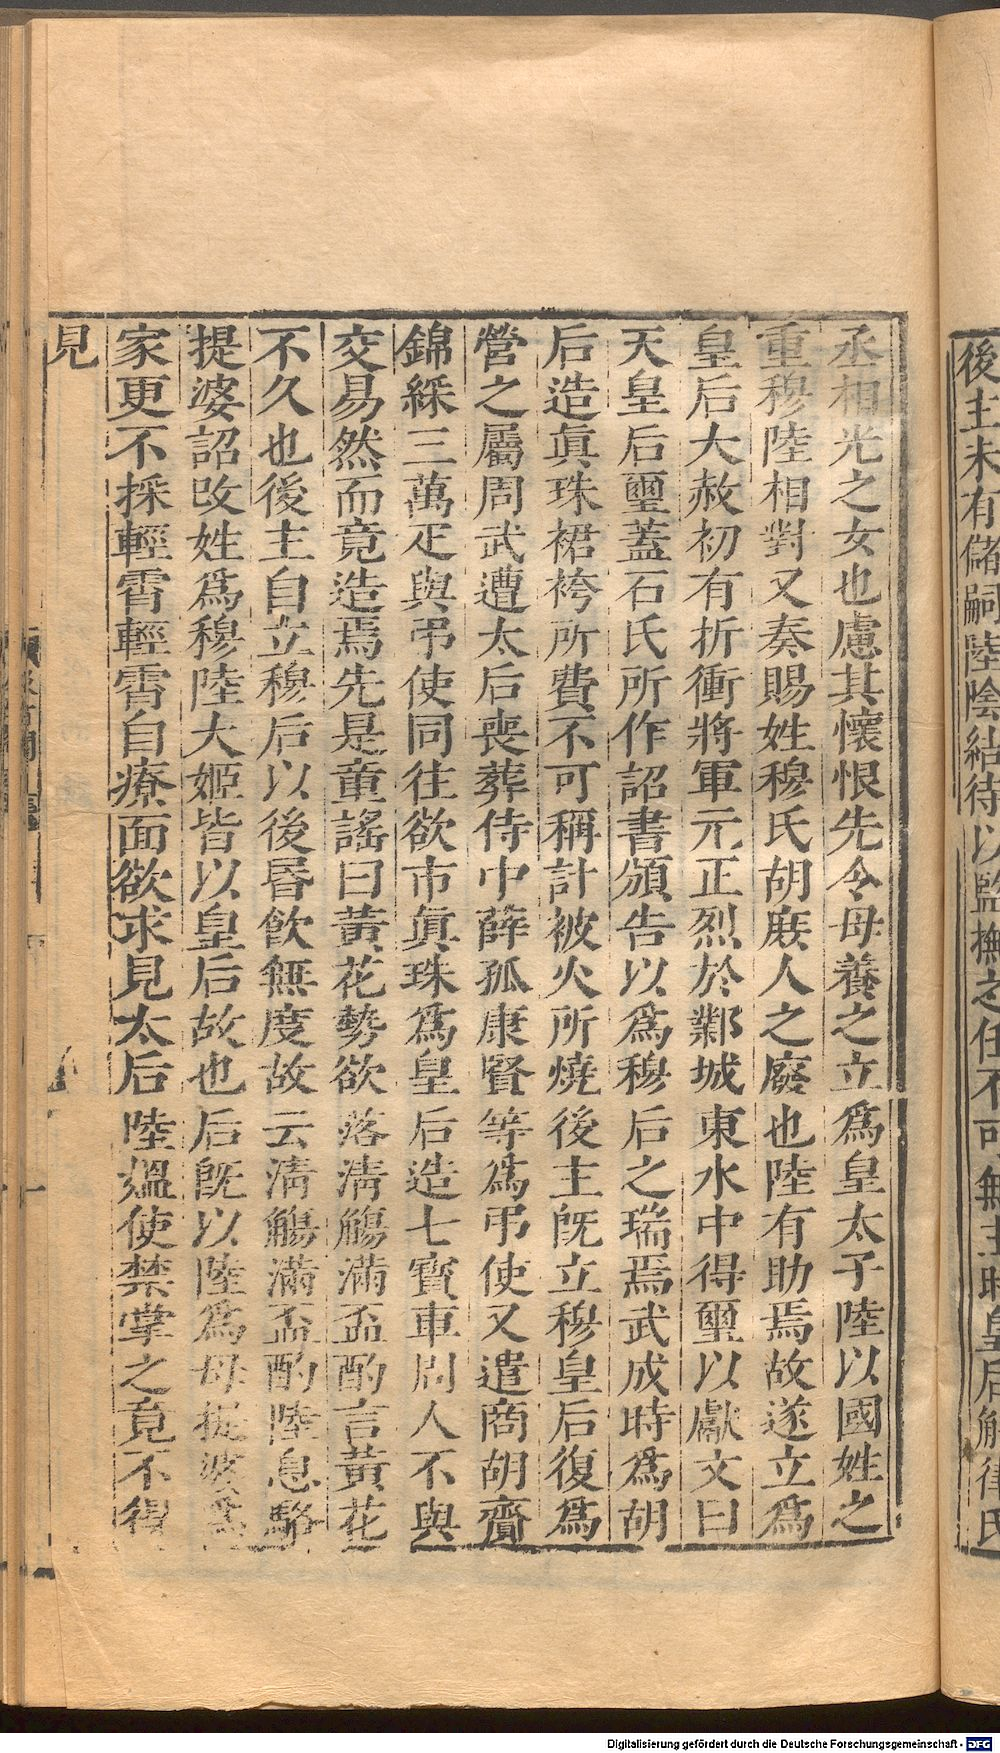 後主未有儲嗣陸陰結待以監撫之任不可無主時皇后斛律氏
丞相光之女也慮其懷恨先令母養之立爲皇太子陸以國姓之
重穆陸相對又奏賜姓穆氏胡庶人之廢也陸有助焉故遂立爲
皇后大赦初有折衝將軍元正烈於鄴城東水中得璽以獻文曰
天皇后璽蓋石氏所作詔書頒告以爲穆后之瑞焉武成時爲胡
后造眞珠裙袴所費不可稱計被火所燒後主旣立穆皇后復爲
營之屬周武遭太后喪葬侍中薛孤康賢等爲弔使又遣商胡齎
錦綵三萬疋與弔使同往欲市眞珠爲皇后造七寳車周人不與
交易然而竟造焉先是童謠曰黃花勢欲落淸觴滿盃酌言黃花
不久也後主自立穆后以後昬飲無度故云淸觴滿盃酌陸息駱
提婆詔改姓爲穆陸大姬皆以皇后故也后旣以陸爲母提婆爲
家更不採輕霄輕霄自療面欲求見太后陸媪使禁掌之竟不得
見
Digitalisierung gefördert durch die Deutsche Forschungsgemeinschaft - DFG